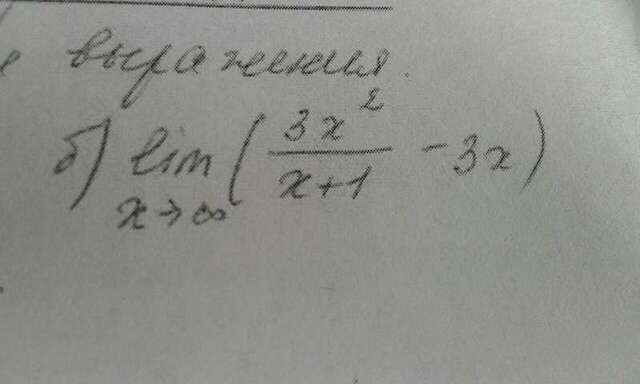 выражения.
б) lim ( 3x² / x+1 - 3x )
x→∞